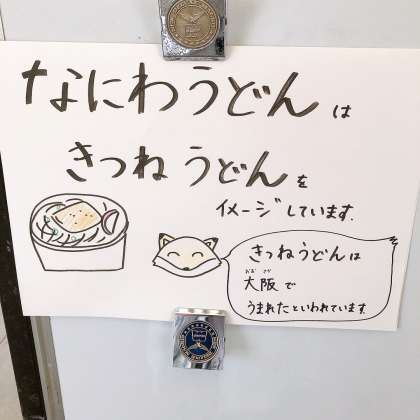 なにわうどんは
きつねうどんを
イメージしています.
きつねうどんは
おおざか
大阪で
うまれたといわれています.